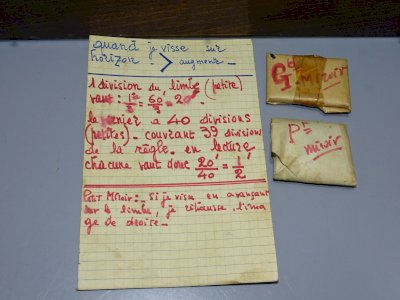 quand je visse sur
horizon > augmente _
1 division du limbe (petite)
vaut : 1°/3 = 60'/3 = 20'
le vernier a 40 divisions
(petites) - couvrant 39 divisions
de la règle. en lecture
chacune vaut donc 20'/40 = 1'/2
Petit Miroir : _ Si je visse en avançant
sur le limbe, je réhausse l'ima
ge de droite _
Gd
Miroir
Pt
miroir